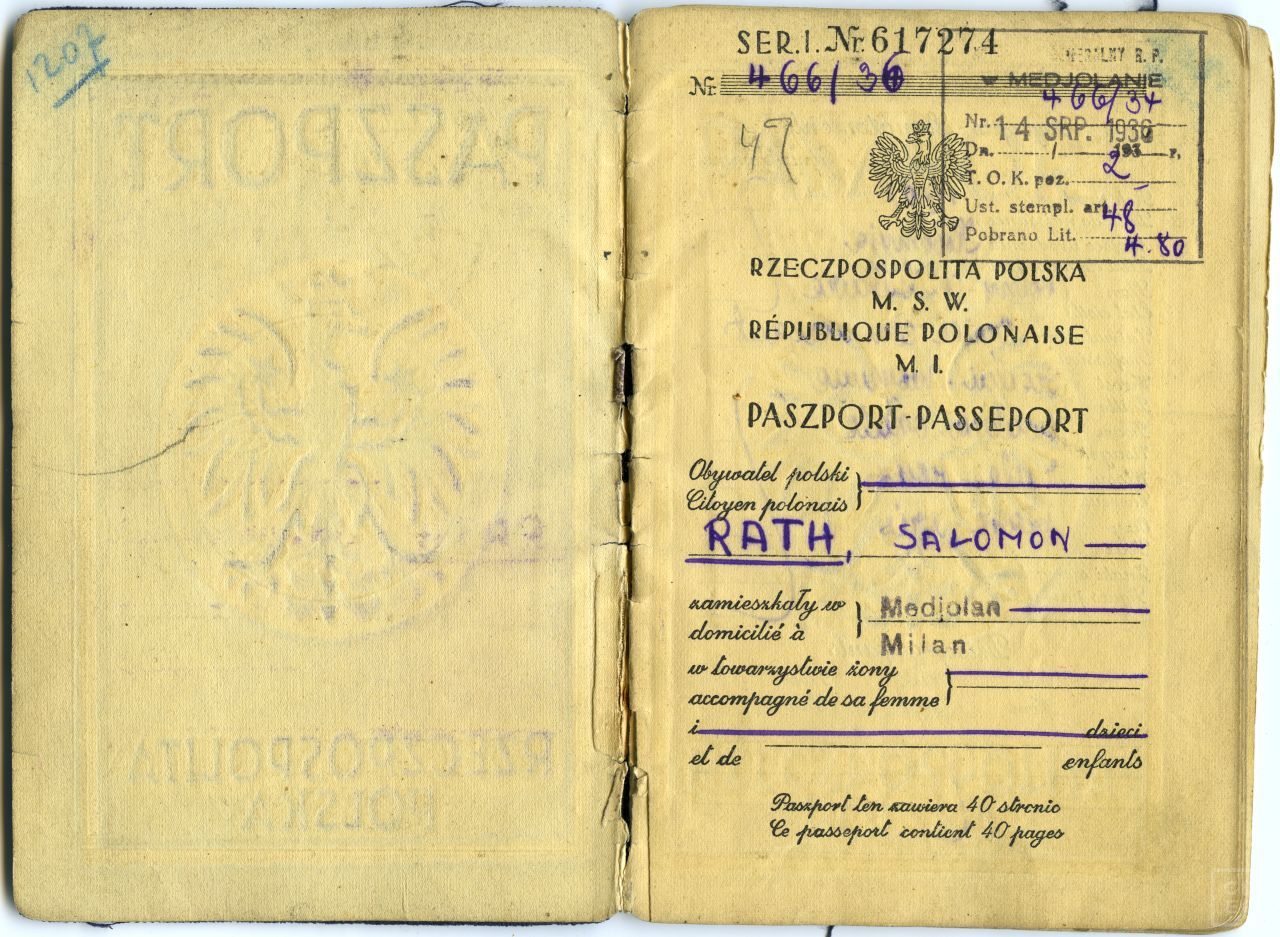 1207
SER. I. Nr 617274
Nr. 466/36
R. P.
W MEDJOLANIE
466/34
Nr.
14 SRP. 1936
Dn. / 193 r.
T. O. K. poz. 2
Ust. stempl. art. 48
Pobrano Lit. 4.80
47
RZECZPOSPOLITA POLSKA
M. S. W.
RÉPUBLIQUE POLONAISE
M. I.
PASZPORT-PASSEPORT
Obywatel polski
Citoyen polonais
RATH, SALOMON
zamieszkały w Medjolan
domicilié à Milan
w towarzystwie żony
accompagné de sa femme
i dzieci
et de enfants
Paszport ten zawiera 40 stronic
Ce passeport contient 40 pages
PASZPORT
RZECZPOSPOLITA
POLSKA